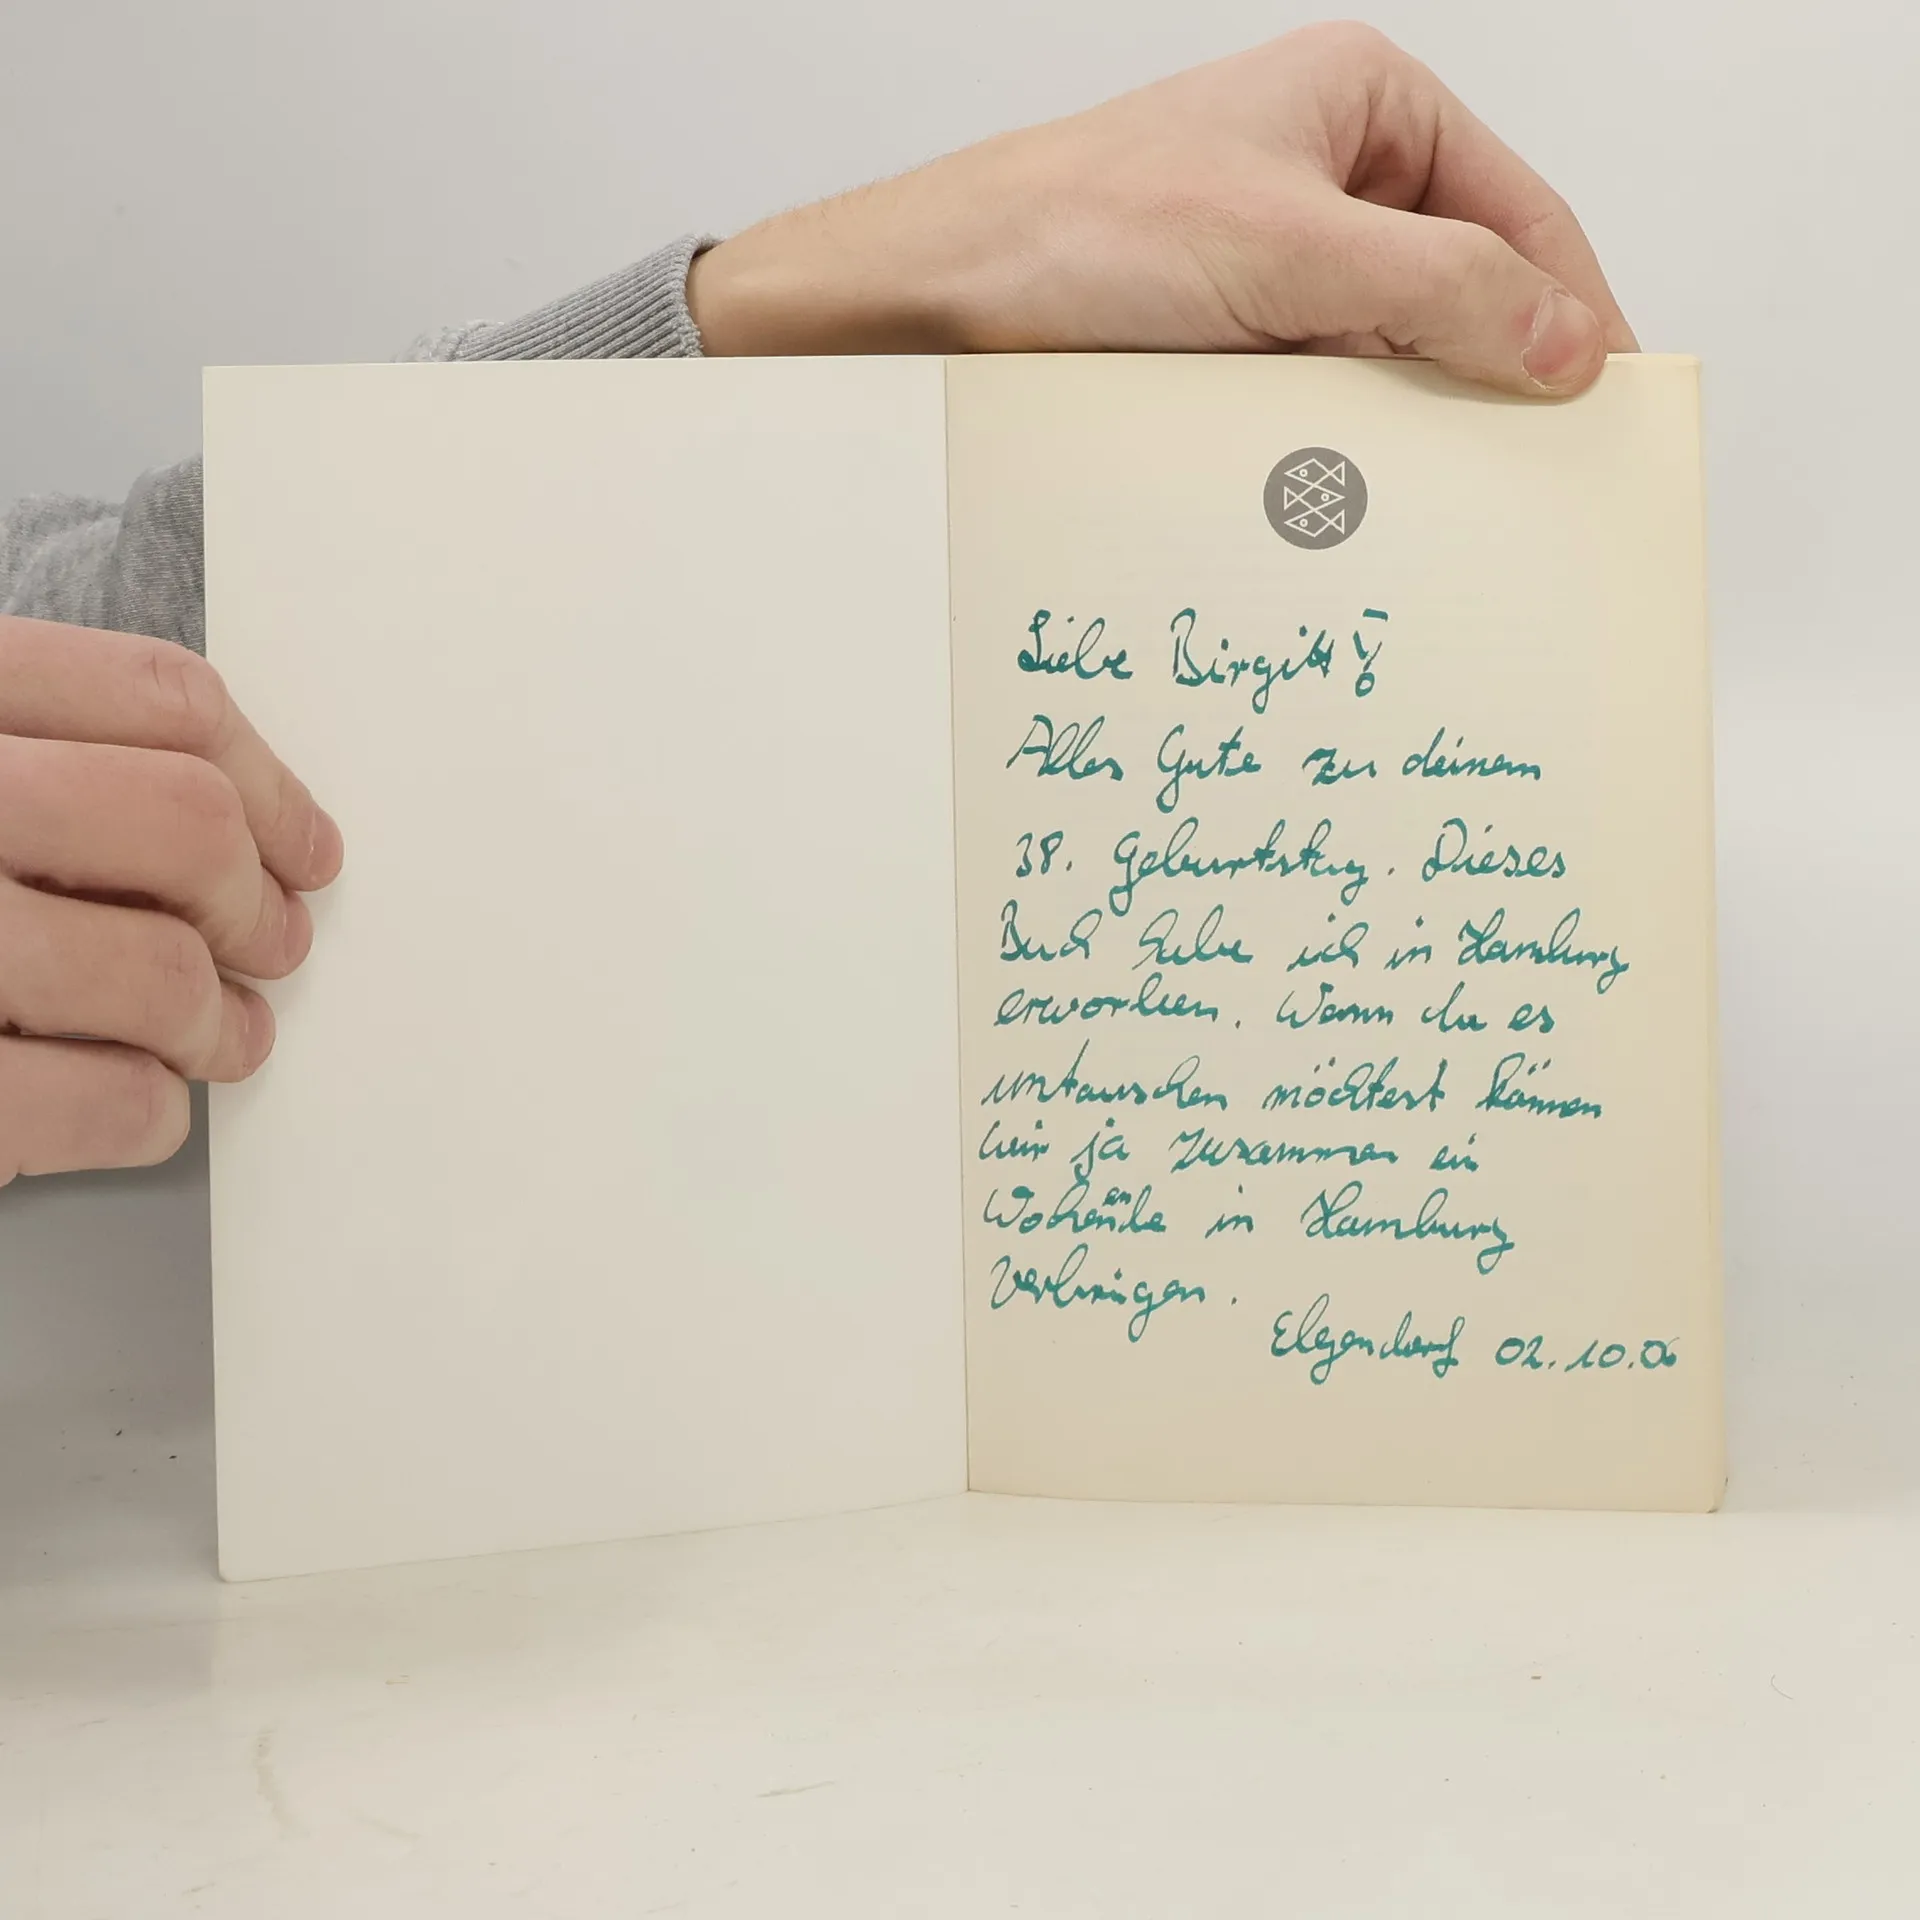 Liebe Birgitt!
Alles Gute zu deinem
38. Geburtstag. Dieses
Buch habe ich in Hamburg
erworben. Wenn du es
umtauschen möchtest können
wir ja zusammen ein
Wochenende in Hamburg
verbringen.
Elgendorf 02.10.06